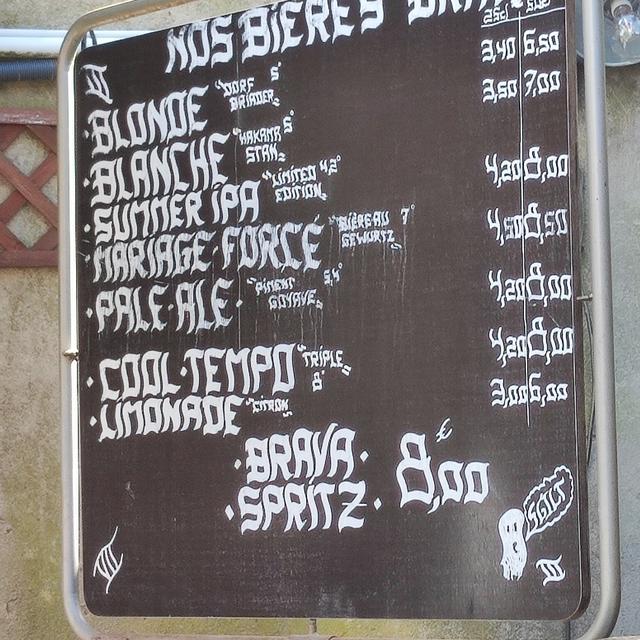 NOS BIÈRES
25cl 50cl
BLONDE "DORF 5° BRIADER" 3,40 6,50
BLANCHE "HAKAMA 5° STAN" 3,50 7,00
SUMMER IPA "LIMITED 4,2° EDITION" 4,20 8,00
MARIAGE FORCÉ "BIÈREAU 7° GEWURTZ" 4,50 8,50
PALE ALE "PIMENT 5,4° GOYAVE" 4,20 8,00
COOL TEMPO "TRIPLE 8°" 4,20 8,00
LIMONADE "CITRON" 3,00 6,00
BRAVA
SPRITZ 8,00 €
SALUT